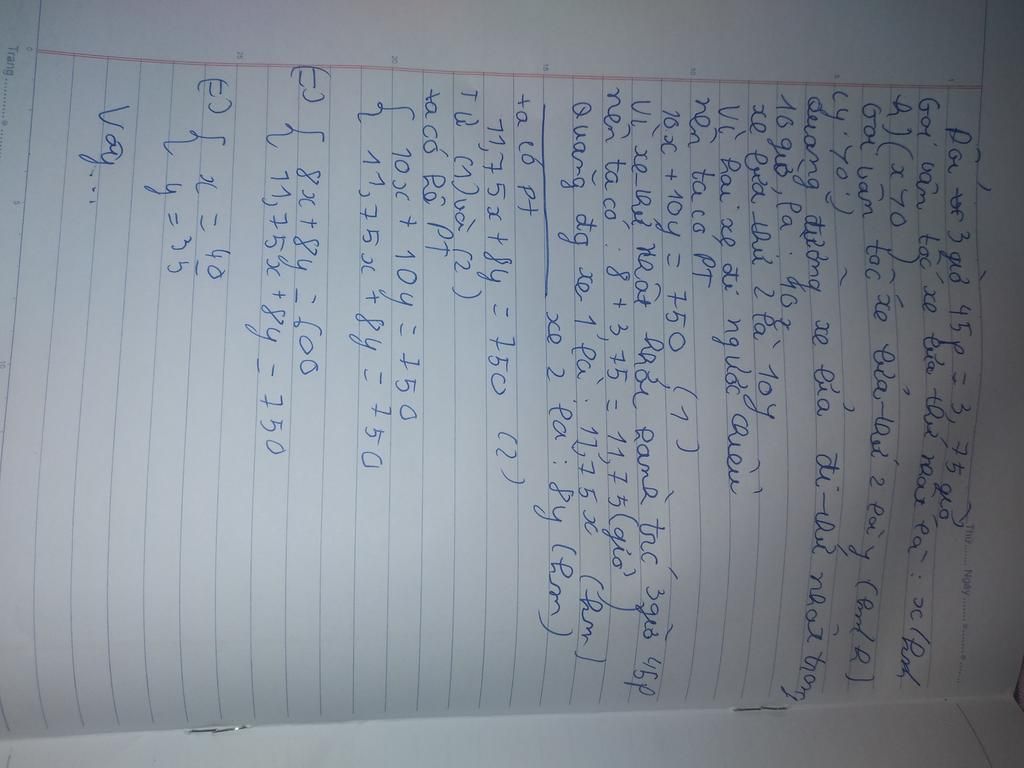 Thứ....... Ngày.......
Đổi 3 giờ 45p = 3,75 giờ
Gọi vân tốc xe lửa thứ nhất là: x (km/
h) (x>0)
Gọi vân tốc xe lửa thứ 2 là y (km/h)
(y>0)
đường xe lửa đi thứ nhất trong
10 giờ là: 10x
xe lửa thứ 2 là 10y
Vì hai xe đi ngược chiều
nên ta có PT
10x + 10y = 750 (1)
Vì xe thứ nhất trước 3 giờ 45p
nên ta có: 8 + 3,75 = 11,75 (giờ)
Quãng đg xe 1 là: 11,75x (km)
xe 2 là: 8y (km)
ta có pt
11,75x + 8y = 750 (2)
Từ (1) và (2)
ta có hệ PT
{ 10x + 10y = 750
{ 11,75x + 8y = 750
(=) { 8x + 8y = 600
{ 11,75x + 8y = 750
(=) { x = 40
{ y = 35
Vậy...
Trang